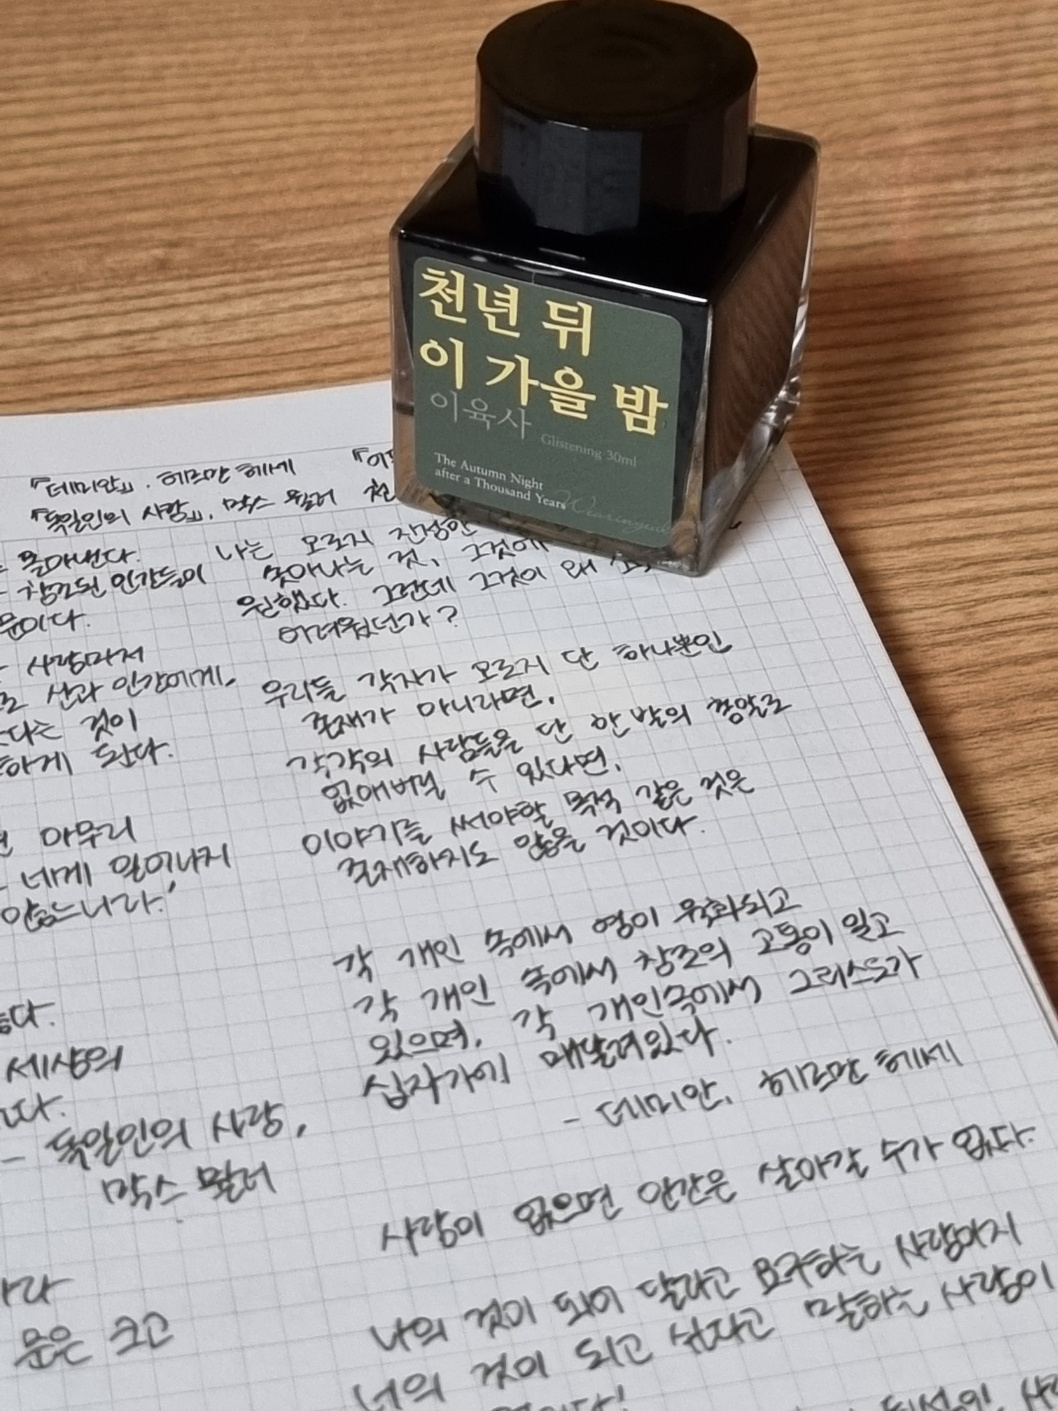 천년 뒤
이 가을 밤
이육사
Glistening 30ml
The Autumn Night
after a Thousand Years
Wearingeul
『데미안』. 헤르만 헤세
『독일인의 사랑』. 막스 뮐러
몰아낸다.
창조된 인간들이
사랑마저
산과 인간에게,
것이
하게 된다.
아무리
네게 일어나지
않느니라.'
세상의
- 독일인의 사랑,
막스 뮐러
문은 크고
나는 오로지 진정한
솟아나는 것, 그것에
원했다. 그런데 그것이 왜
어려웠던가?
우리들 각자가 오로지 단 하나뿐인
존재가 아니라면,
각각의 사람들을 단 한 발의 총알로
없애버릴 수 있다면,
이야기를 써야할 목적 같은 것은
존재하지도 않을 것이다.
각 개인 속에서 영이 육화되고
각 개인 속에서 창조의 고통이 일고
있으며, 각 개인속에서 그리스도가
십자가에 매달려있다.
- 데미안, 헤르만 헤세
사랑이 없으면 인간은 살아갈 수가 없다.
나의 것이 되어 달라고 요구하는 사랑이지
너의 것이 되고 싶다고 말하는 사랑이